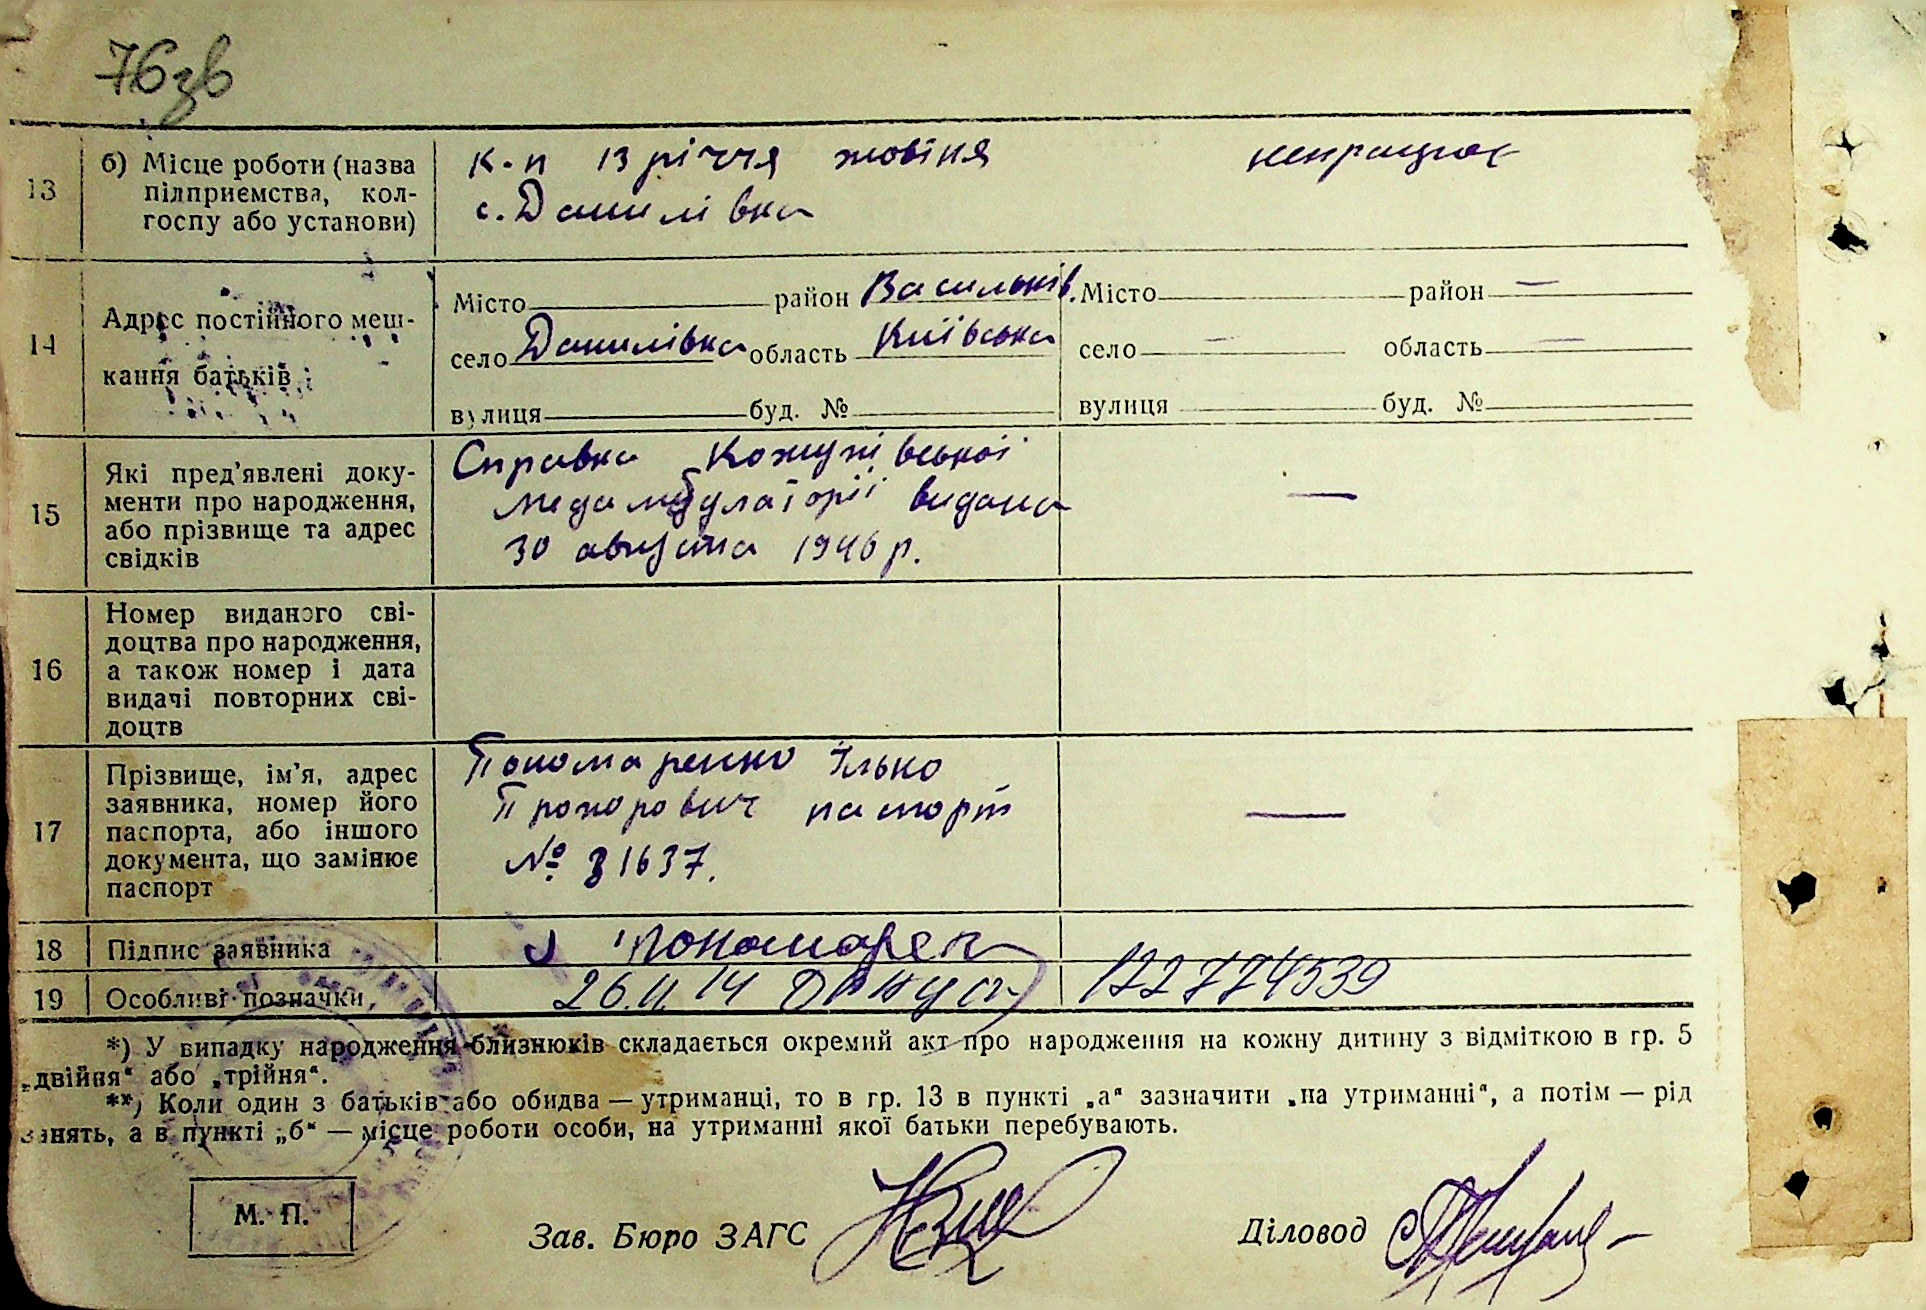 76зв
13
б) Місце роботи (назва
підприємства, кол-
госпу або установи)
к-п 13 річчя жовтня
с. Данилівка
непрацює
14
Адрес постійного меш-
кання батьків
Місто район Васильків.
село Данилівка область Київська
вулиця буд. №
Місто район —
село — область —
вулиця буд. №
15
Які пред'явлені доку-
менти про народження,
або прізвище та адрес
свідків
Справка Кожухівської
медамбулаторії видана
30 августа 1946 р.
—
16
Номер виданого сві-
доцтва про народження,
а також номер і дата
видачі повторних сві-
доцтв
17
Прізвище, ім'я, адрес
заявника, номер його
паспорта, або іншого
документа, що замінює
паспорт
Пономаренко Ілько
Прохорович паспорт
№ 31637.
—
18
Підпис заявника
Пономарен
19
Особливі позначки
26.11.14 122774539
*) У випадку народження близнюків складається окремий акт про народження на кожну дитину з відміткою в гр. 5
„двійня“ або „трійня“.
**) Коли один з батьків або обидва — утриманці, то в гр. 13 в пункті „а“ зазначити „на утриманні“, а потім — рід
занять, а в пункті „б“ — місце роботи особи, на утриманні якої батьки перебувають.
М. П.
Зав. Бюро ЗАГС
Діловод